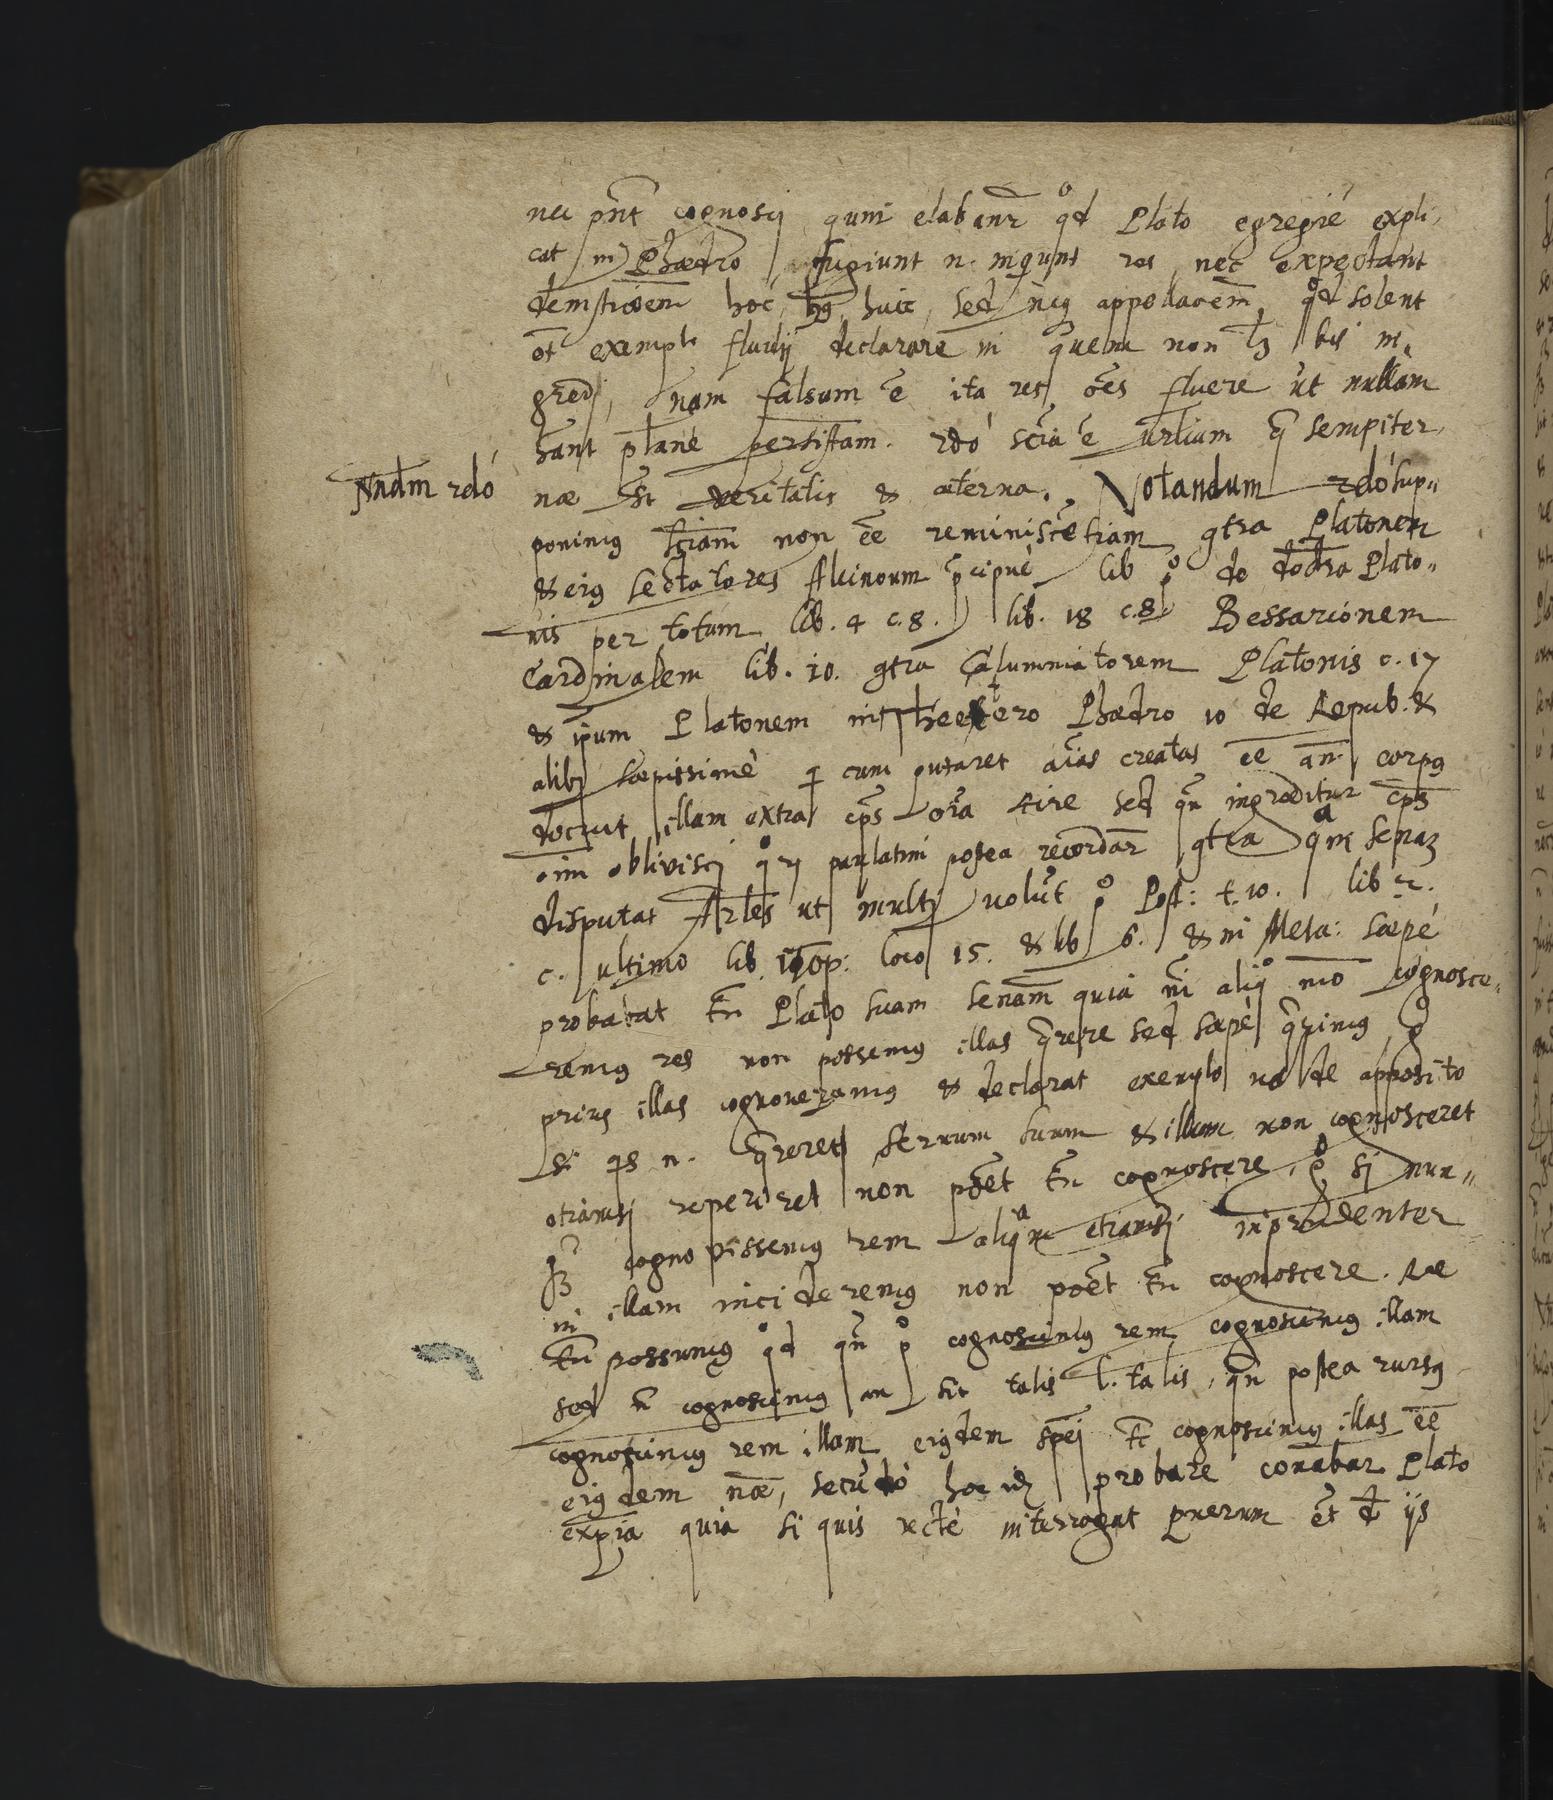 nec pn̄t cognosci quni elabanr̄ qd Plato egregiè expli,
cat in Phædro fugiunt n. inquiunt res nec expectant
demstrōem hoc, huic, sed appellaōem, qd solent
et exemplo fluvij declarare in quem non bis in,
gredi, nam falsum ē ita res oēs fluere ut nullam
hant planè persistam. 2dò sciā ē urlium q sempiter,
Nndm 2dò
næ st veritatis & æterna. Notandum 2dò sup,,
ponimus sciam non ēē reminiscētiam gtra Platonem
& eiq sectatores Alcinoum p̄cipuè lib po de doctra Plato,,
nis per totum lib. 4 c. 8. lib. 18 c. 8 Bessarionem
Cardinalem lib. 10. gtra Calumniatorem Platonis c. 17
& ipum Platonem in Theetero Phædro 10 de Repub. &
alibi sæpissimè q cum putaret aīas creatas ēē an corpq
docuit illam extra cps oīa scire sed qn ingreditur cps
oim oblivisci paulatim postea recordar gtra qm senaz
disputat Arles ut multi volūt po Post: t. 10. lib 2.
c. ultimo lib Top: loco 15. & lib 6. & in Meta: sæpè
probabat tn Plato suam senam quia ni aliqo mo cognosce,
remus res non possemus illas q̄rere sed sæpè q̄rimus, go
prius illas cognoveramus & declarat exemplo de apposito
si qs n. q̄reret servum suum & illum non cognosceret
etiamsi reperiret non poēt tn cognoscere, go si nun,,
cognovissemus rem aliqm etiamsi inprudenter
in illam incideremus non poēt tn cognoscere.
tn possumus qd qn po cognoscimus rem cognoscimus illam
sed n cognoscimus an sit talis l. talis, qn postea rursq
cognoscimus rem illam eiqdem spēi tc cognoscimus illas ēē
eiqdem næ, secūdò hoc probare conabar Plato
expia quia si quis rectè interrogat puerum et d ijs